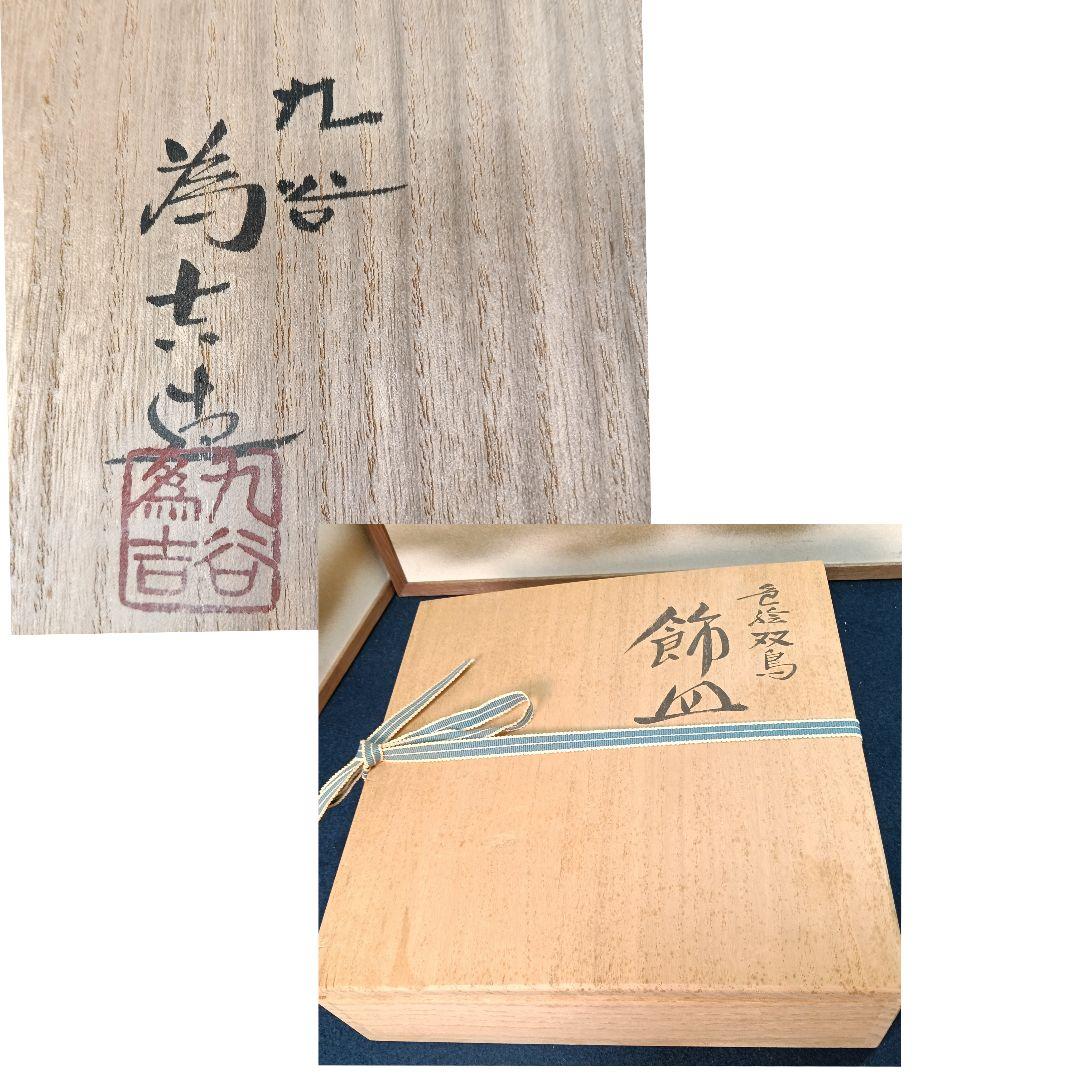 九谷
為吉造
九谷
為吉
色絵双鳥
飾皿